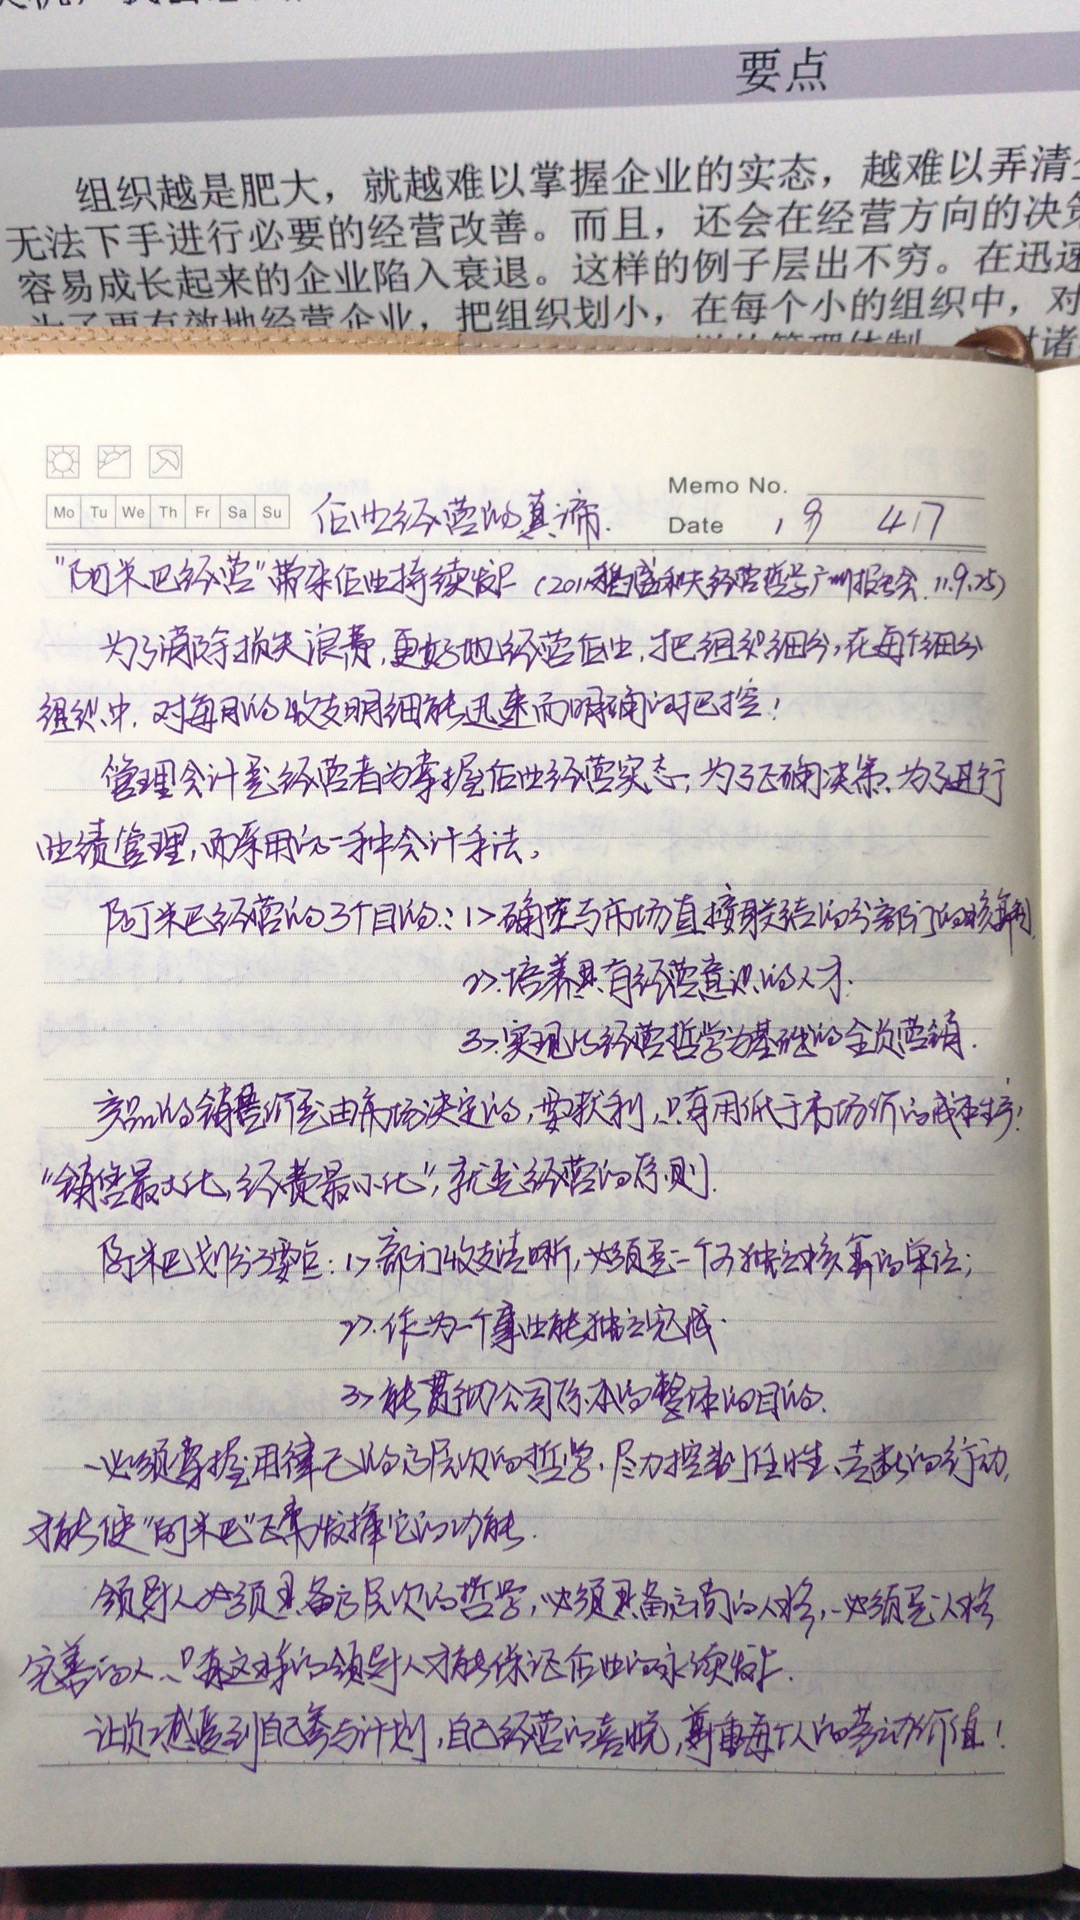 要点
组织越是肥大，就越难以掌握企业的实态，越难以弄清
无法下手进行必要的经营改善。而且，还会在经营方向的决策
容易成长起来的企业陷入衰退。这样的例子层出不穷。在迅速
为了更有效地经营企业，把组织划小，在每个小的组织中，对
的管理体制 对诸
Memo No.
Mo Tu We Th Fr Sa Su 企业经营的真谛. Date 19 4 17
"阿米巴经营"带来企业持续发展 (2011稻盛和夫经营哲学广州报告会.11.9.25)
为了消除损失浪费,更好地经营企业,把组织细分,在每个细分
组织中,对每月的收支明细能迅速而明确的把控!
管理会计是经营者为掌握企业经营实态,为了正确决策、为了进行
业绩管理,而采用的一种会计手法。
阿米巴经营的3个目的:1>确定与市场直接联结的分部门的核算制
2>.培养具有经营意识的人才.
3>.实现以经营哲学为基础的全员营销.
产品的销售价是由市场决定的,要获利,只有用低于市场价的成本生产!
"销售最大化,经费最小化",就是经营的原则.
阿米巴划分3要点:1>部门收支清晰,必须是一个可独立核算的单位;
2>.作为一个事业能独立完成.
3>能贯彻公司原本的整体的目的.
必须掌握用律己的高层次的哲学,尽力控制任性、武断的行动,
才能使"阿米巴"正常发挥它的功能.
领导人必须具备高层次的哲学,必须具备高尚的人格,必须是人格
完善的人.只有这样的领导人才能保证企业的永续发展.
让员工感受到自己参与计划,自己经营的喜悦,尊重每个人的劳动价值!